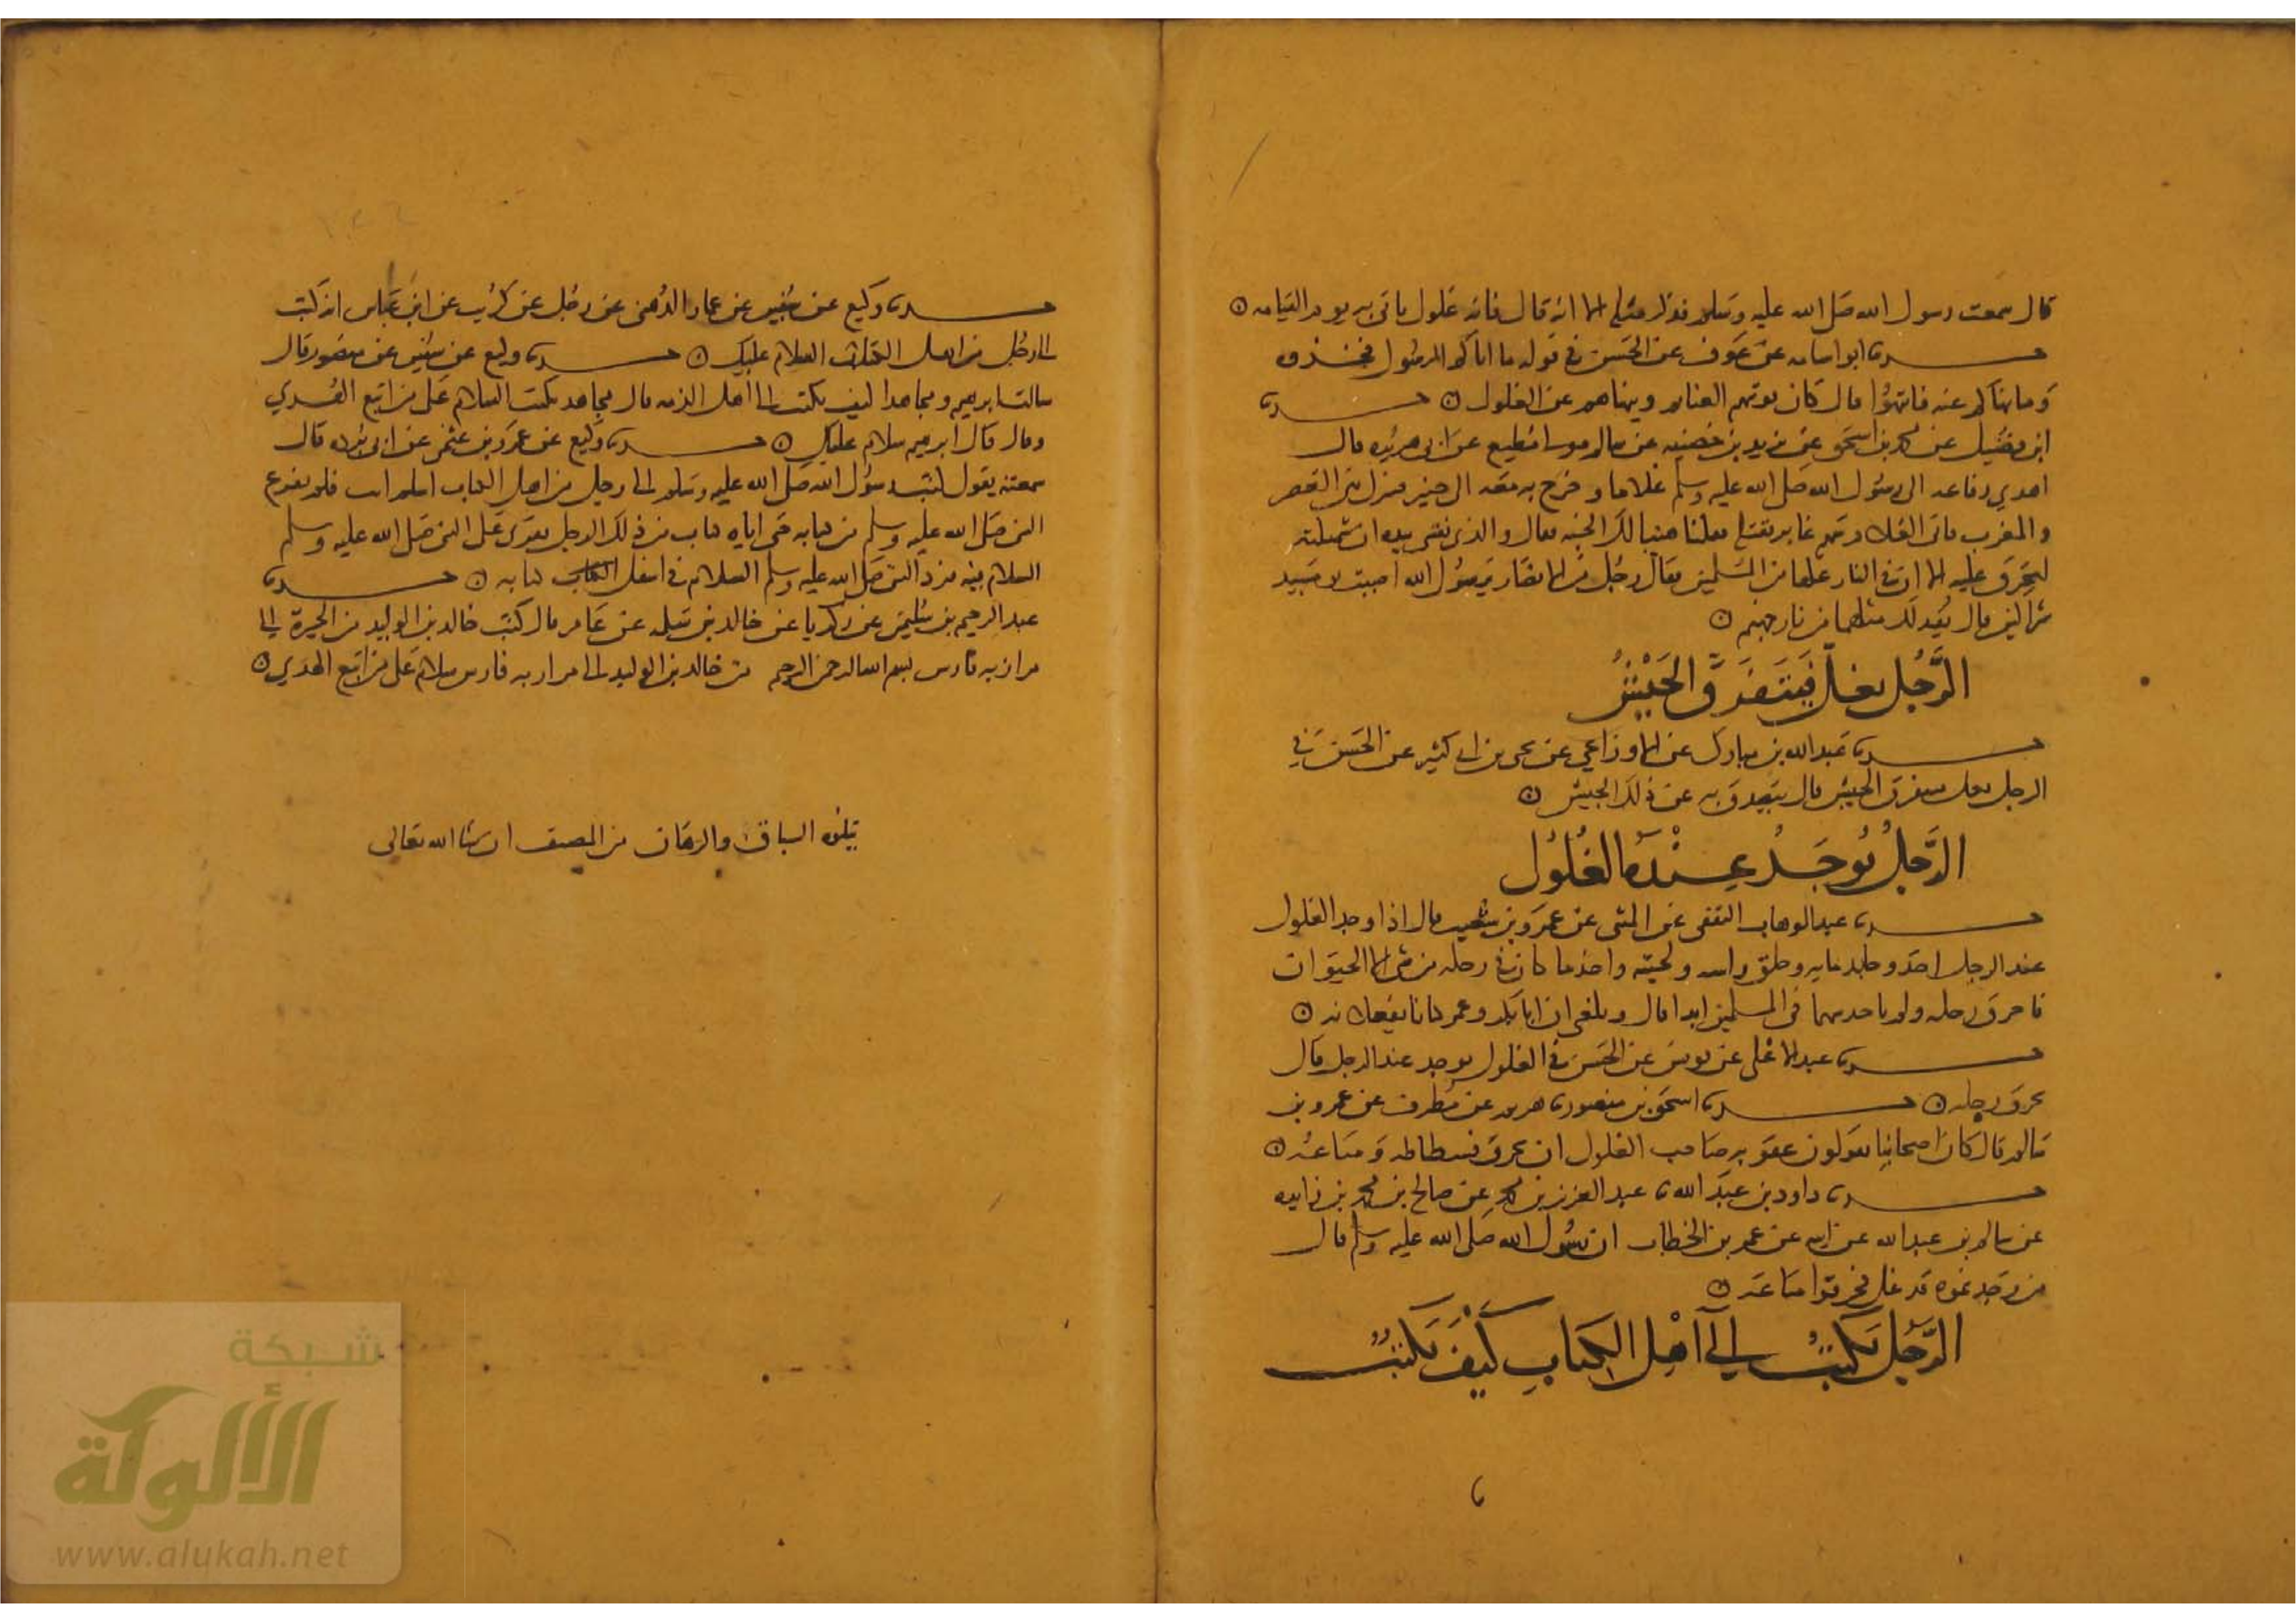 قال سمعت رسول الله صلى الله عليه وسلم فذكر مثله الا انه قال فانه غلول ياتى به يوم القيامه
حدثنا ابو اسامه عن عوف عن الحسن في قوله ما اتاكم الرسول فخذوه
وما نهاكم عنه فانتهوا قال كان يوتيهم الغنايم وينهاهم عن الغلول حدثنا
ابن فضيل عن محمد بن اسحق عن يزيد بن خصيفه عن سالم مولى ابن مطيع عن ابى هريره قال
اهدي رفاعه الى رسول الله صلى الله عليه وسلم غلاما وخرج به معه الى خيبر فنزل بين العصر
والمغرب فاتى الغلام سهم غاير فقتله فقلنا هنيا لك الجنه فقال والذى نفسى بيده ان شملته
لتحرق عليه الان فى النار غلها من المسلمين فقال رجل من الانصار يرسول الله اصبت يوميذ
شراكين قال يقد لك مثلهما من نار جهنم
الرَّجُل يغل فيَتَفَرَّق الجَيْشُ
حدثنا عبد الله بن مبارك عن الاوزاعي عن يحيى بن ابى كثير عن الحسن في
الرجل يغل فيتفرق الجيش قال يتصدق به عن ذلك الجيش
الرَّجلُ يُوجَدُ عِنْدَهُ الغُلُوُل
حدثنا عبد الوهاب الثقفى عن المثنى عن عمرو بن شعيب قال اذا وجد الغلول
عند الرجل اخذ وجلد مايه وحلق راسه ولحيته واخذ ما كان فى رحله من شى الا الحيوان
فاحرق رحله ولم ياخذ سهما فى المسلمين ابدا قال وبلغنى ان ابا بكر وعمر كانا يفعلانه
حدثنا عبد الاعلى عن يونس عن الحسن فى الغلول يوجد عند الرجل قال
يحرق رحله حدثنا اسحق بن منصور هريم عن مطرف عن عمرو بن
سالم قال كان اصحابنا يقولون عقوبه صاحب الغلول ان يحرق فسطاطه ومتاعه
حدثنا داود بن عبد الله عبد العزيز بن محمد عن صالح بن محمد بن زايده
عن سالم بن عبد الله عن ابيه عن عمر بن الخطاب ان رسول الله صلى الله عليه وسلم قال
من وجدتموه قد غل فحرقوا متاعه
الرَّجُل يَكتُبُ إلى اَهْل الكِتَابِ كَيْفَ يَكتُبُ
حدثنا وكيع عن سفين عن عمار الدهنى عن رجل عن كريب عن ابن عباس انه كتب
الى رجل من اهل الكتاب السلام عليك حدثنا وكيع عن سفين عن منصور قال
سالت ابرهيم ومجاهدا كيف يكتب الى اهل الذمه قال مجاهد يكتب السلام على من اتبع الهدي
وقال قال ابرهيم سلام عليك حدثنا وكيع عن عمرو بن عثمن عن ابى برده قال
سمعته يقول كتب رسول الله صلى الله عليه وسلم الى رجل من اهل الكتاب اسلم انت فلم يفرغ
النبى صلى الله عليه وسلم من كتابه حتى اتاه كتاب من ذلك الرجل يقرى على النبى صلى الله عليه وسلم
السلام فيه فرد النبى صلى الله عليه وسلم السلام فى اسفل كتابه حدثنا
عبد الرحيم بن سليمن عن زكريا عن خالد بن سلمه عن عامر قال كتب خالد بن الوليد من الحيرة الى
مرازبه فارس بسم الله الرحمن الرحيم من خالد بن الوليد الى مرازبه فارس سلام على من اتبع الهدي
يتلوه السباق والرهان من المصنف ان شا الله تعالى
شبكة
الألوكة
www.alukah.net